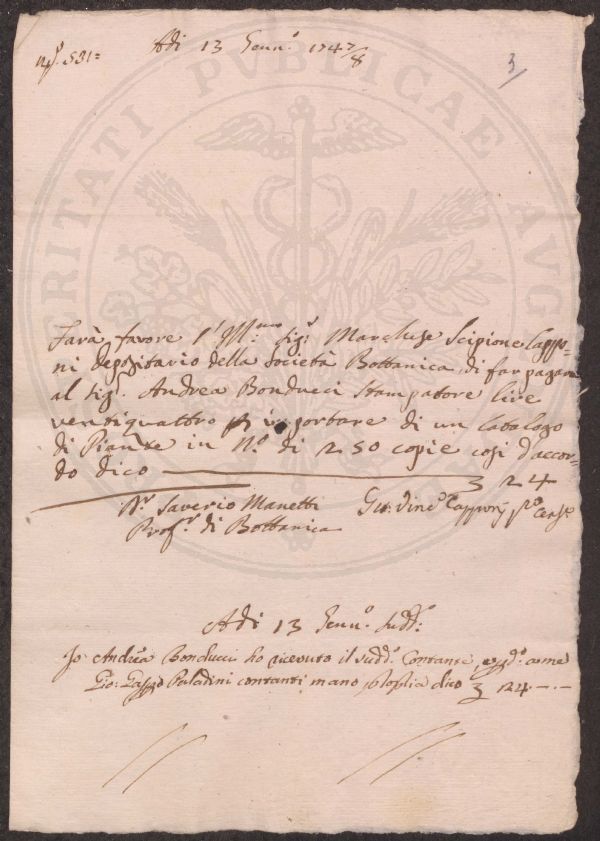 Adi 13 Genn.º 1747/8
Nº. 531=
3
PROSPERITATI PVBLICAE AVGENDAE
Farà favore l'Ill.mo Sig.r Marchese Scipione Cappo-
ni depositario della Società Bottanica, di far pagare
al Sig.r Andrea Bonducci Stampatore lire
ventiquattro p importare di un Catalogo
di Piante in Nº. di 250 copie cosi d'accor-
do dico 24
Dr. Saverio Manetti
Prof.r di Bottanica
Gio. Vinc.º Capponi
Adi 13 Genn.º Sudd.º
Io Andrea Bonducci ho ricevuto il sudd.º Contante,
Gio: Paladini contanti mano ppia dico 24 -.-